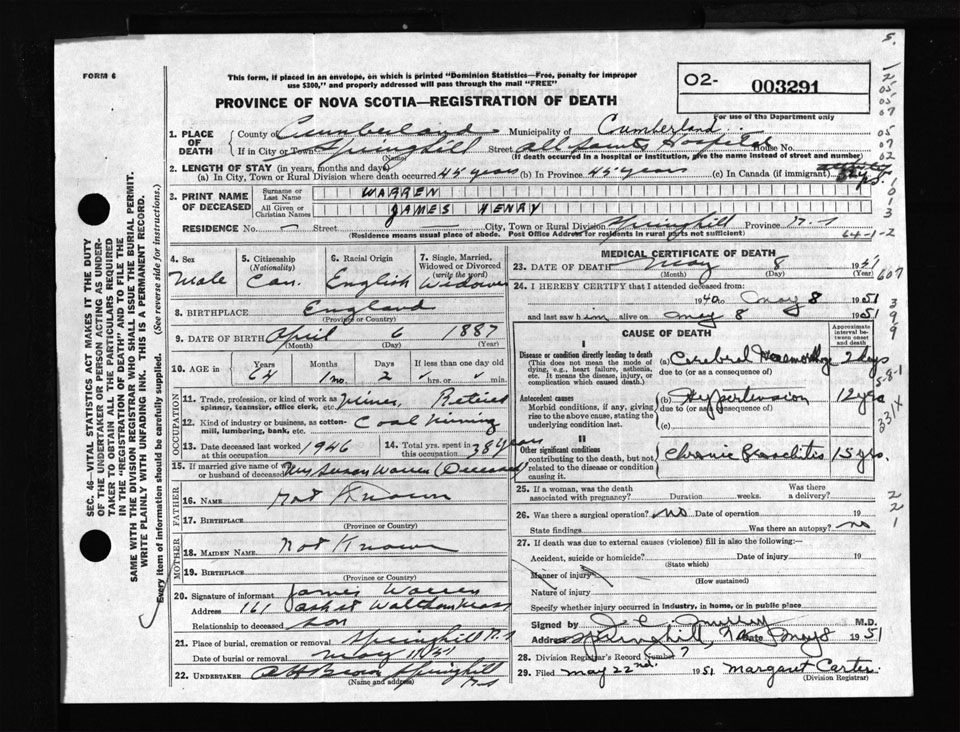 FORM 6
This form, if placed in an envelope, on which is printed "Dominion Statistics—Free, penalty for improper
use $300," and properly addressed will pass through the mail "FREE"
PROVINCE OF NOVA SCOTIA—REGISTRATION OF DEATH
O2- 003291
For use of the Department only
1. PLACE OF DEATH
County of Cumberland Municipality of Cumberland
If in City or Town Springhill Street All Saints Hospital House No.
(Name) (If death occurred in a hospital or institution, give the name instead of street and number)
2. LENGTH OF STAY (in years, months and days)
(a) In City, Town or Rural Division where death occurred 45 years (b) In Province 45 years (c) In Canada (if immigrant)
3. PRINT NAME OF DECEASED
Surname or Last Name WARREN
All Given or Christian Names JAMES HENRY
RESIDENCE No. — Street City, Town or Rural Division Springhill Province N.S
(Residence means usual place of abode. Post Office Address for residents in rural parts not sufficient)
64-1-2
4. Sex Male
5. Citizenship (Nationality) Can.
6. Racial Origin English
7. Single, Married, Widowed or Divorced (write the word) Widower
8. BIRTHPLACE England
(Province or Country)
9. DATE OF BIRTH April 6 1887
(Month) (Day) (Year)
10. AGE in Years Months Days If less than one day old
64 1 mo. 2 hrs. or min.
OCCUPATION
11. Trade, profession, or kind of work as spinner, teamster, office clerk, etc. Miner Retired
12. Kind of industry or business, as cotton-mill, lumbering, bank, etc. Coal Mining
13. Date deceased last worked at this occupation 1946
14. Total yrs. spent in this occupation 38 years
15. If married give name of wife or husband of deceased Mrs Susan Warren (Deceased)
FATHER
16. NAME Not Known
17. BIRTHPLACE
(Province or Country)
MOTHER
18. MAIDEN NAME Not Known
19. BIRTHPLACE
(Province or Country)
20. Signature of informant James Warren
Address 161 Ash St Waltham Mass
Relationship to deceased son
21. Place of burial, cremation or removal Springhill N.S
Date of burial or removal May 11/51
22. UNDERTAKER A H Brown Springhill N.S
(Name and address)
MEDICAL CERTIFICATE OF DEATH
23. DATE OF DEATH May 8 1951
(Month) (Day) (Year)
24. I HEREBY CERTIFY that I attended deceased from:
1940 to May 8 1951
and last saw him alive on May 8 1951
CAUSE OF DEATH
Approximate interval between onset and death
I
Disease or condition directly leading to death
(This does not mean the mode of dying, e.g., heart failure, asthenia, etc. It means the disease, injury, or complication which caused death.)
(a) Cerebral Haemorrhage 2 days
due to (or as a consequence of)
Antecedent causes
Morbid conditions, if any, giving rise to the above cause, stating the underlying condition last.
(b) Hypertension 12 yrs
due to (or as a consequence of)
(c)
II
Other significant conditions
contributing to the death, but not related to the disease or condition causing it.
Chronic 15 yrs.
25. If a woman, was the death associated with pregnancy? Duration weeks. Was there a delivery?
26. Was there a surgical operation? No Date of operation 19
State findings Was there an autopsy? no
27. If death was due to external causes (violence) fill in also the following:—
Accident, suicide or homicide? Date of injury 19
(State which)
Manner of injury
(How sustained)
Nature of injury
Specify whether injury occurred in industry, in home, or in public place
Signed by J. C. Murray M.D.
Address Springhill, Date May 8 1951
28. Division Registrar's Record Number 7
29. Filed May 22nd. 1951 Margaret Carter.
(Division Registrar)
SEC. 46—VITAL STATISTICS ACT MAKES IT THE DUTY
OF THE UNDERTAKER OR PERSON ACTING AS UNDER-
TAKER TO OBTAIN ALL THE PARTICULARS REQUIRED
IN THE "REGISTRATION OF DEATH" AND TO FILE THE
SAME WITH THE DIVISION REGISTRAR WHO SHALL ISSUE THE BURIAL PERMIT.
WRITE PLAINLY WITH UNFADING INK. THIS IS A PERMANENT RECORD.
Every item of information should be carefully supplied. (See reverse side for instructions.)